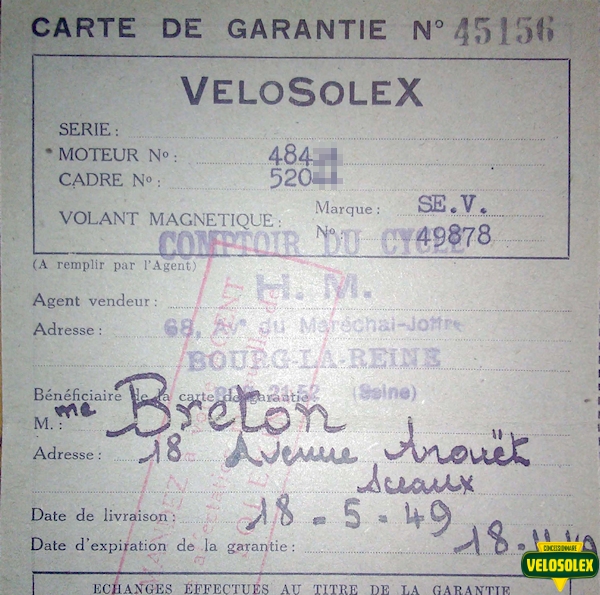 CARTE DE GARANTIE N° 45156
VELOSOLEX
SERIE :
MOTEUR No : 484
CADRE No : 520
VOLANT MAGNETIQUE : Marque : SE.V.
No : 49878
COMPTOIR DU CYCLE
(A remplir par l'Agent)
H. M.
Agent vendeur :
Adresse : 68, Av. du Maréchal-Joffre
BOURG-LA-REINE
21-52 (Seine)
Bénéficiaire de la carte de garantie
M. : me Breton
Adresse : 18 Avenue Arouët
Sceaux
Date de livraison : 18 - 5 - 49
Date d'expiration de la garantie : 18 - 11
ECHANGES EFFECTUES AU TITRE DE LA GARANTIE
CONCESSIONNAIRE
VELOSOLEX